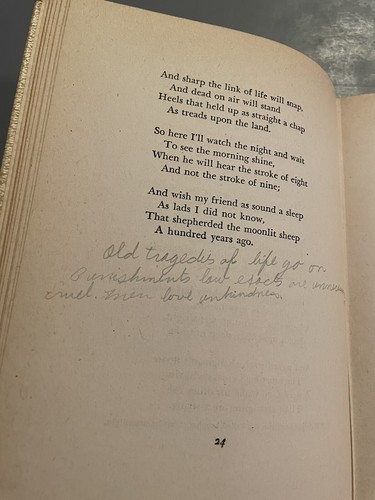 And sharp the link of life will snap,
And dead on air will stand
Heels that held up as straight a chap
As treads upon the land.
So here I'll watch the night and wait
To see the morning shine,
When he will hear the stroke of eight
And not the stroke of nine;
And wish my friend as sound a sleep
As lads I did not know,
That shepherded the moonlit sheep
A hundred years ago.
Old tragedies of life go on.
Punishments law exacts are
cruel. Men love unkindness.
24